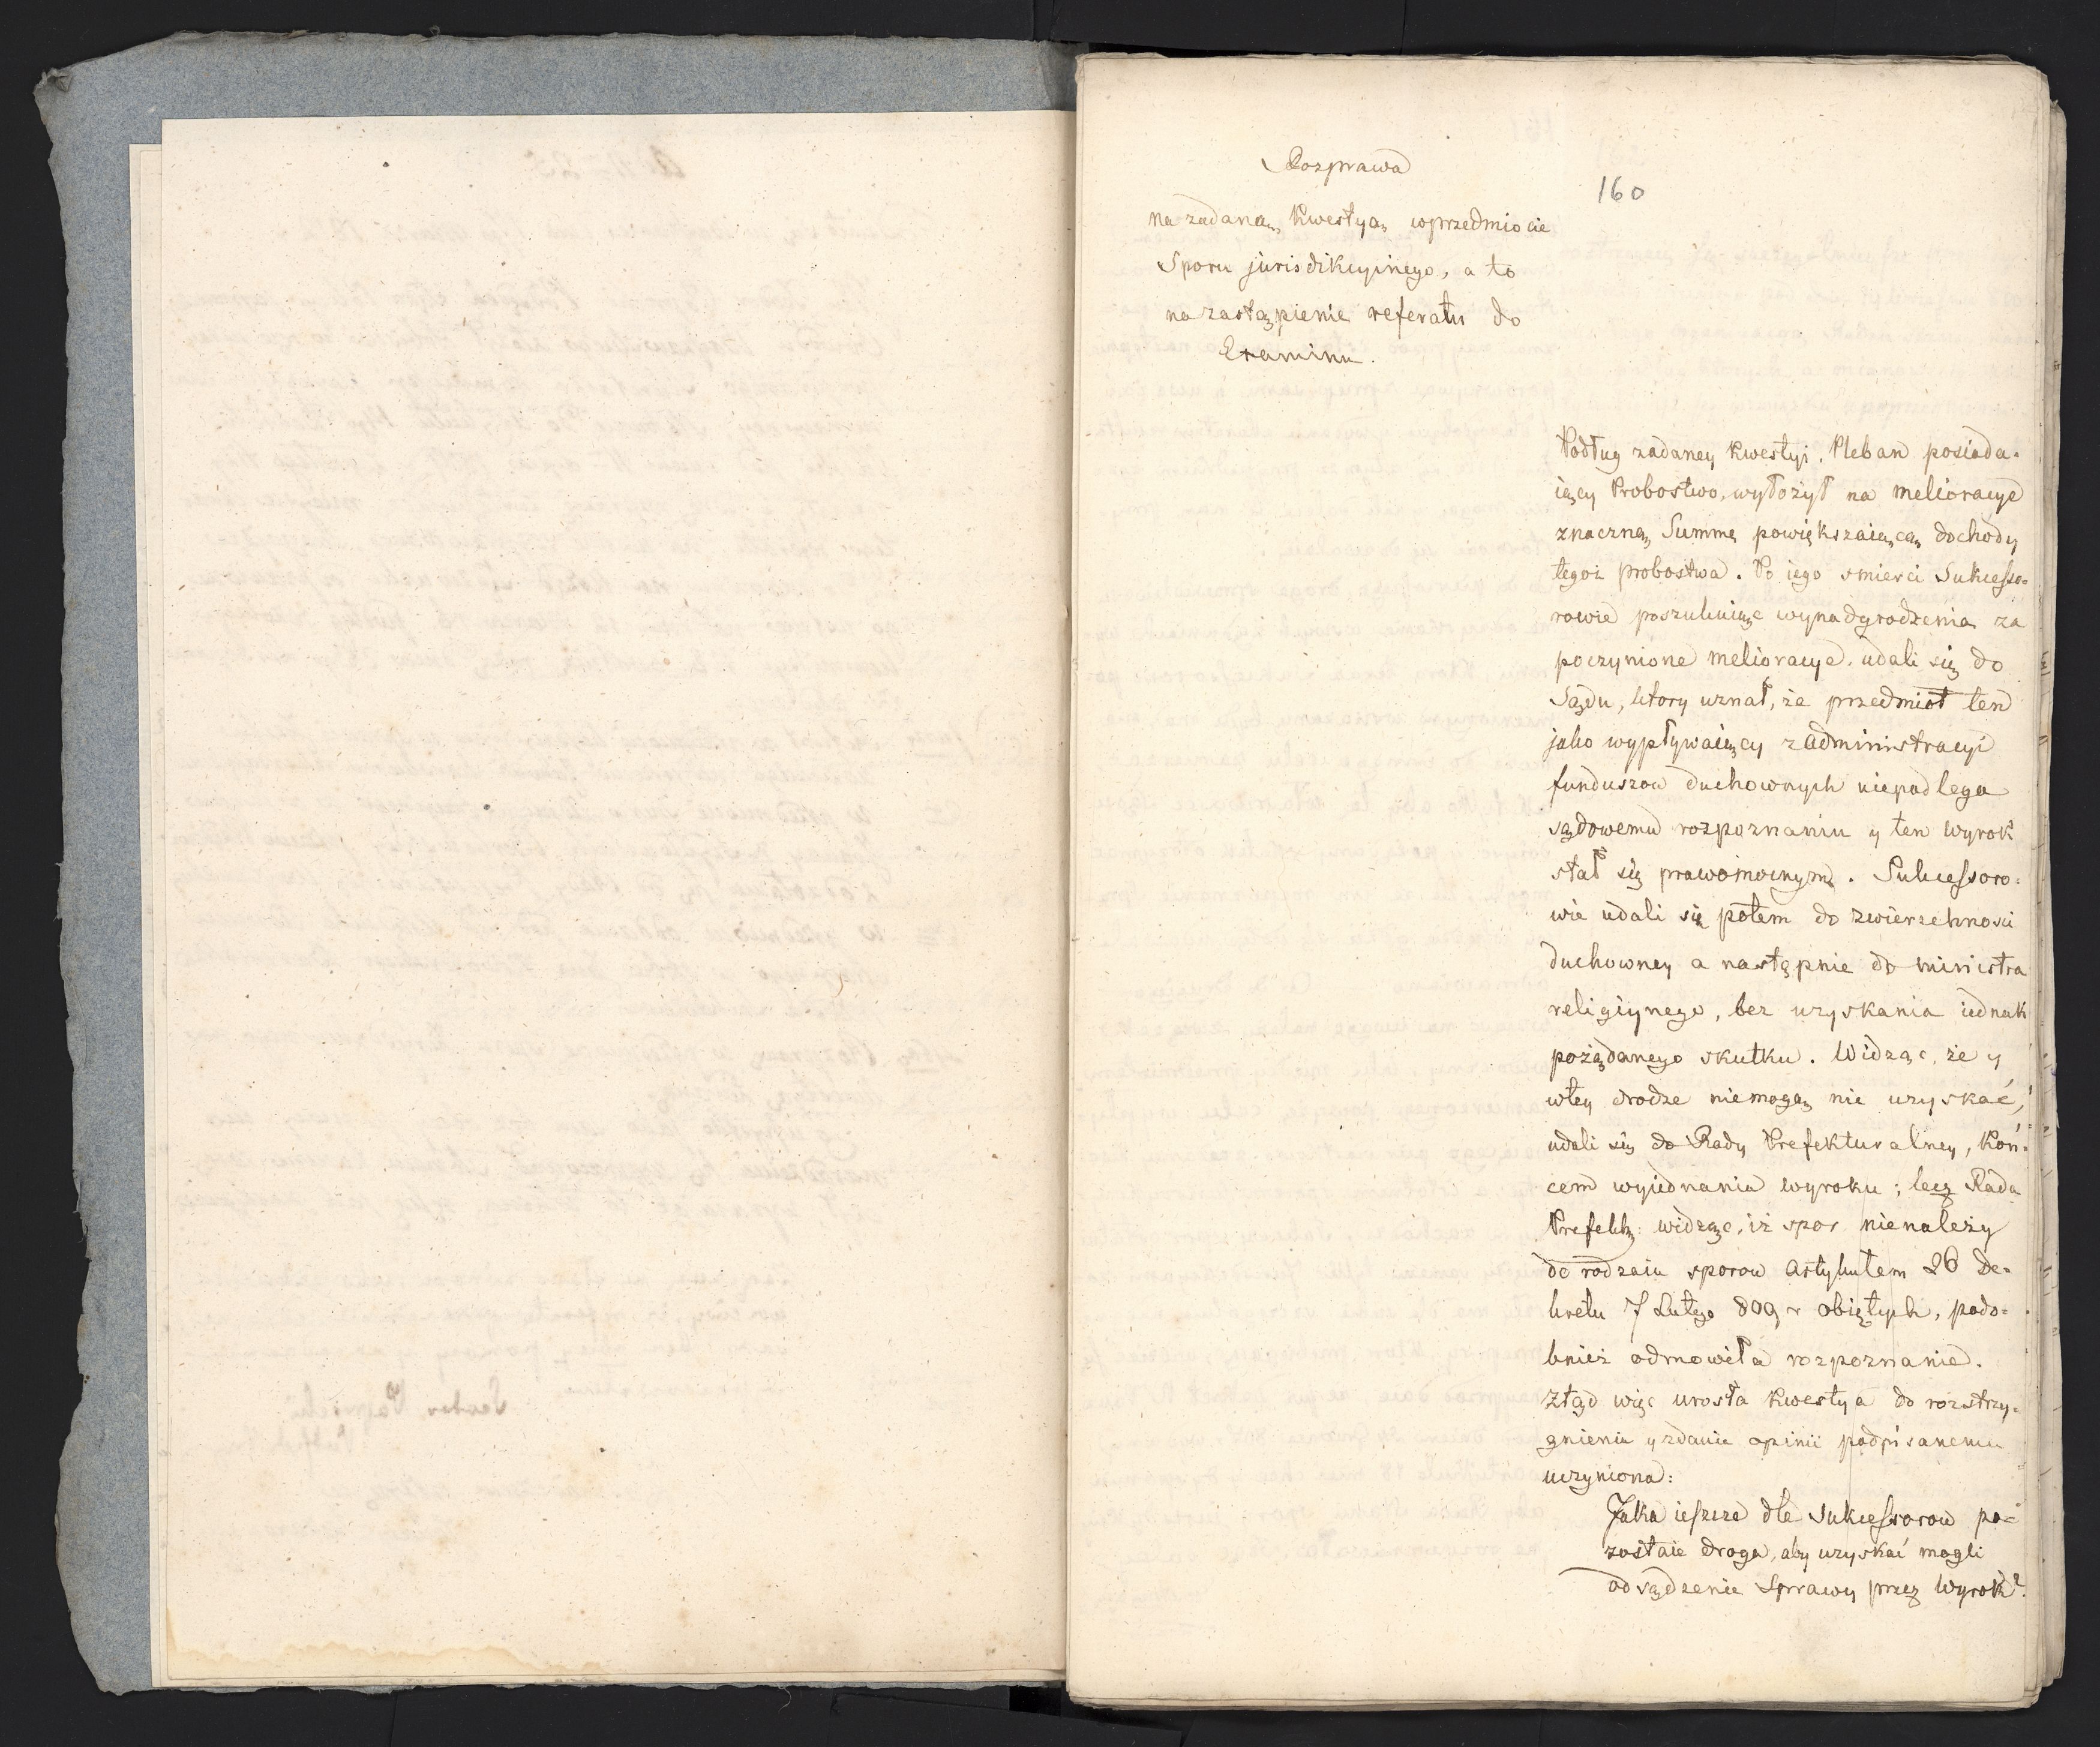 Rozprawa
160
na zadaną Kwestyą wprzedmiocie
Sporu jurisdikcyinego, a to
na zastąpienie referatu do
Examinu.
Podług zadaney Kwestyi, Pleban posiada-
iący Probostwo, wyłożył na melioracye
znaczną Summę powiększaiącą dochody
tegoż probostwa. Po iego smierci Sukcesso-
rowie poszukuiąc wynadgrodzenia za
poczynione melioracye, udali się do
Sądu, ktory uznał, że przedmiot ten
jako wypływaiący z administracyi
funduszow duchownych niepodlega
sądowemu rozpoznaniu y ten Wyrok
stał się prawomocnym. Sukcessoro-
wie udali się potem do zwierzchnosci
duchowney a następnie do ministra
religiynego, bez uzyskania iednak
pożądanego skutku. Widząc, że y
wtey drodze niemogą nic uzyskać,
udali się do Rady Prefekturalney, Koń-
cem wyiednania wyroku; lecz Rada
Prefektz: widząc, iż spor nienależy
do rodzaiu sporow Artykułem 26 De-
kretu 7 Lutego 809 r obiętych, podo-
bnież odmowiła rozpoznanie.
Ztąd więc urosła Kwestya do rozstrzy-
gnienia y zdania opinii podpisanemu
uczyniona:
Jaka ieszcze dla Sukcessorow po-
zostaie droga, aby uzyskać mogli
odsądzenie Sprawy przez Wyrok?